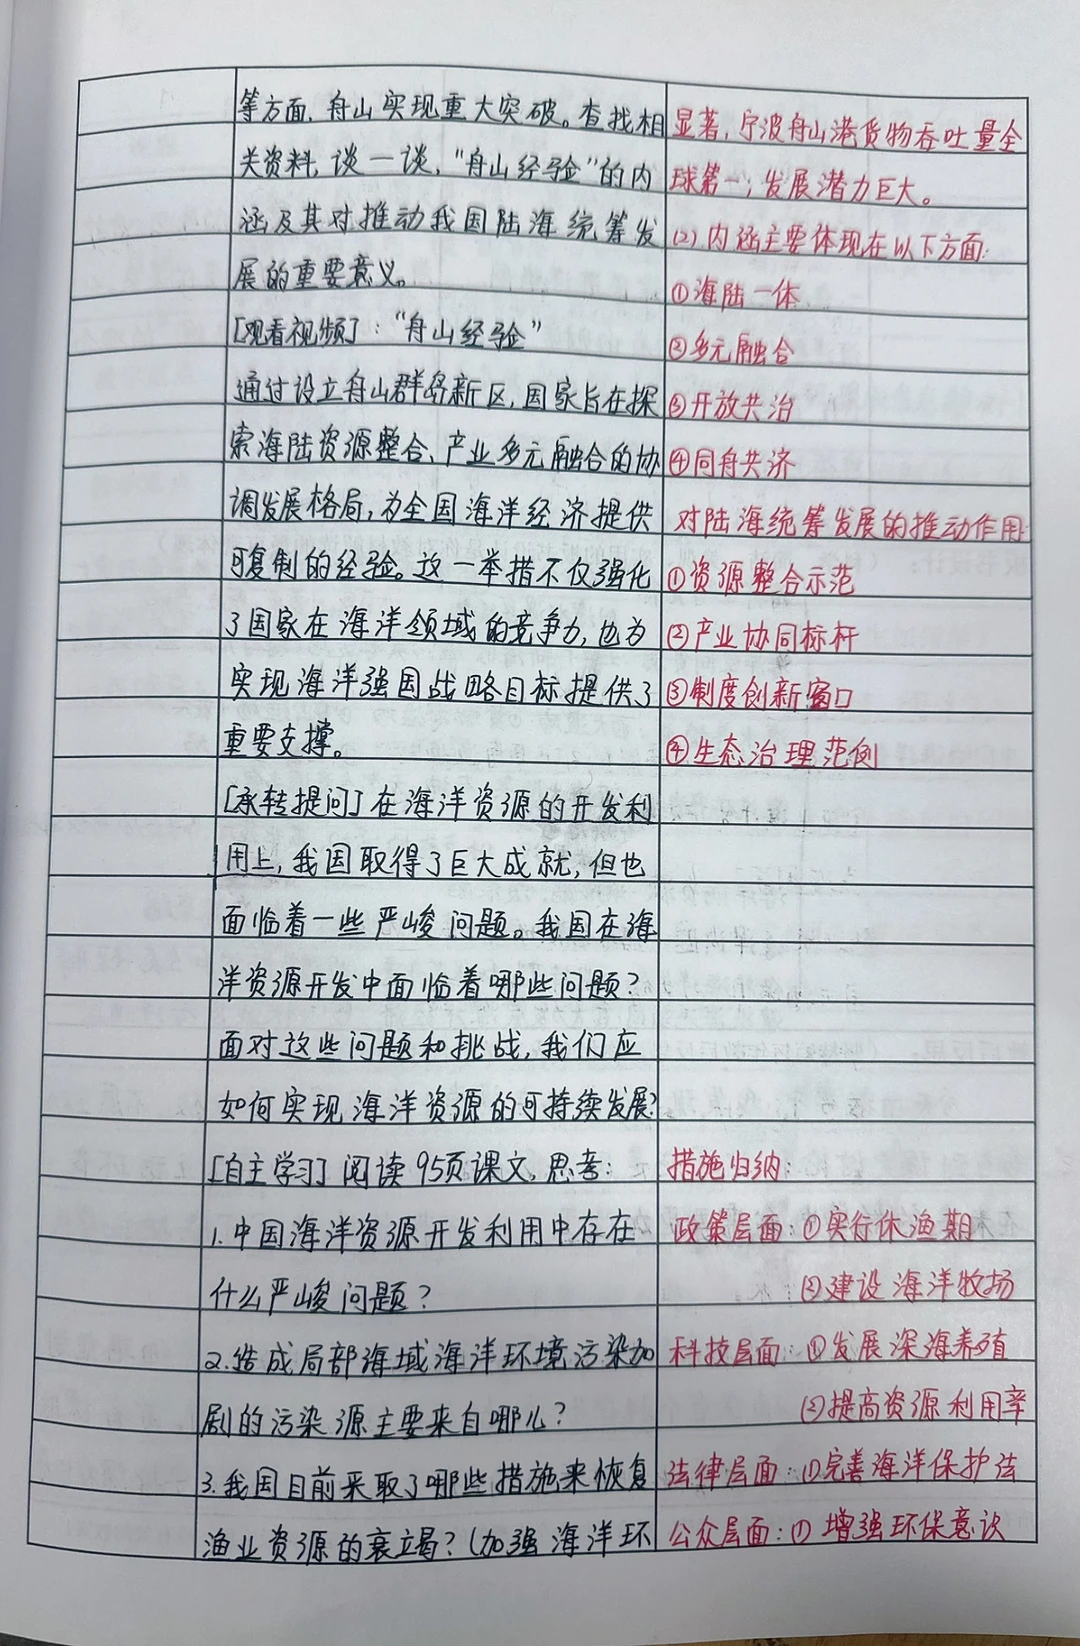 等方面，舟山实现重大突破。查找相
关资料，谈一谈，“舟山经验”的内
涵及其对推动我国陆海统筹发
展的重要意义。
[观看视频]：“舟山经验”
通过设立舟山群岛新区，国家旨在探
索海陆资源整合、产业多元融合的协
调发展格局，为全国海洋经济提供
可复制的经验。这一举措不仅强化
了国家在海洋领域的竞争力，也为
实现海洋强国战略目标提供了
重要支撑。
[承转提问]在海洋资源的开发利
用上，我国取得了巨大成就，但也
面临着一些严峻问题。我国在海
洋资源开发中面临着哪些问题？
面对这些问题和挑战，我们应
如何实现海洋资源的可持续发展？
[自主学习]阅读95页课文，思考：
1.中国海洋资源开发利用中存在
什么严峻问题？
2.造成局部海域海洋环境污染加
剧的污染源主要来自哪儿？
3.我国目前采取了哪些措施来恢复
渔业资源的衰竭？(加强海洋环
显著，宁波舟山港货物吞吐量全
球第一；发展潜力巨大。
(2)内涵主要体现在以下方面：
①海陆一体
②多元融合
③开放共治
④同舟共济
对陆海统筹发展的推动作用：
①资源整合示范
②产业协同标杆
③制度创新窗口
④生态治理范例
措施归纳
政策层面：①实行休渔期
②建设海洋牧场
科技层面：①发展深海养殖
②提高资源利用率
法律层面：①完善海洋保护法
公众层面：①增强环保意识